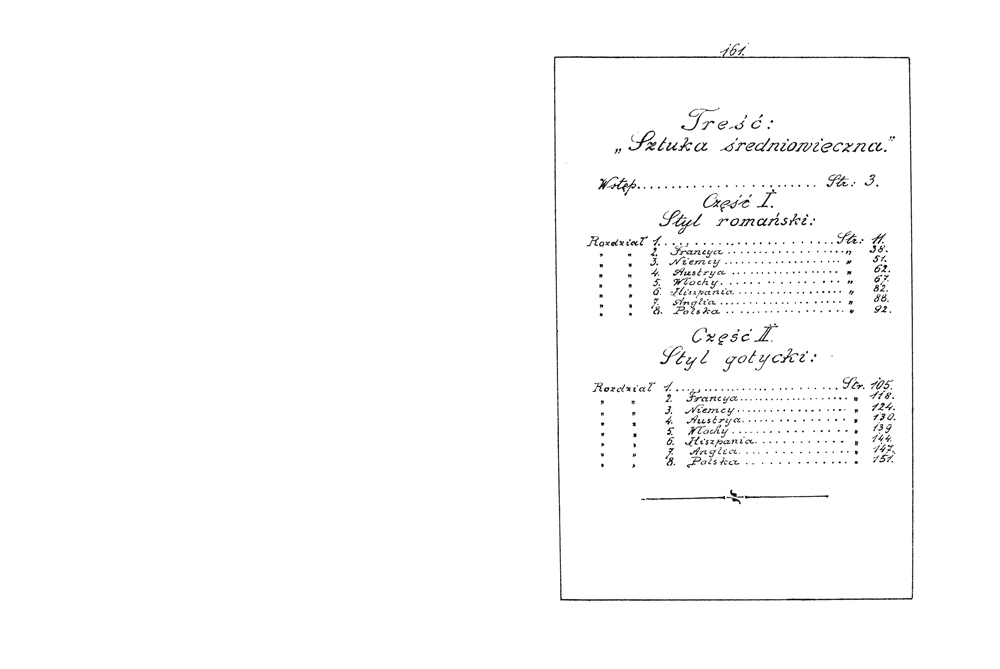 161.
Treść:
„Sztuka średniowieczna."
Wstęp........................ Str: 3.
Część I.
Styl romański:
Rozdział 1........................ Str: 11.
„ „ 2. Francya.................. „ 38.
„ „ 3. Niemcy.................. „ 51.
„ „ 4. Austrya.................. „ 62.
„ „ 5. Włochy.................. „ 67.
„ „ 6. Hiszpania.................. „ 82.
„ „ 7. Anglia.................. „ 88.
„ „ 8. Polska.................. „ 92.
Część II.
Styl gotycki:
Rozdział 1........................ Str. 105.
„ „ 2. Francya.................. „ 118.
„ „ 3. Niemcy.................. „ 124.
„ „ 4. Austrya.................. „ 130.
„ „ 5. Włochy.................. „ 139
„ „ 6. Hiszpania.................. „ 144.
„ „ 7. Anglia.................. „ 147.
„ „ 8. Polska.................. „ 151.